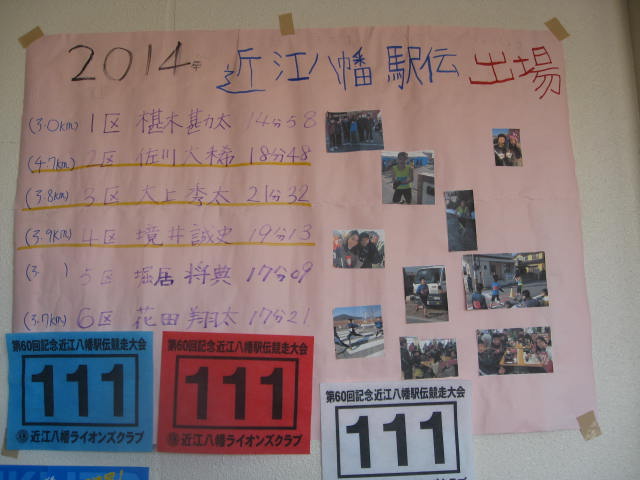 2014年 近江八幡駅伝 出場
(3.0km) 1区 椹木甚太 14分58
(4.7km) 2区 佐川大稀 18分48
(3.8km) 3区 大上秀太 21分32
(3.9km) 4区 境井誠史 19分13
(3. ) 5区 堀居将典 17分09
(3.7km) 6区 花田翔太 17分21
第60回記念近江八幡駅伝競走大会
111
近江八幡ライオンズクラブ
第60回記念近江八幡駅伝競走大会
111
近江八幡ライオンズクラブ
第60回記念近江八幡駅伝競走大会
111
近江八幡ライオンズクラブ